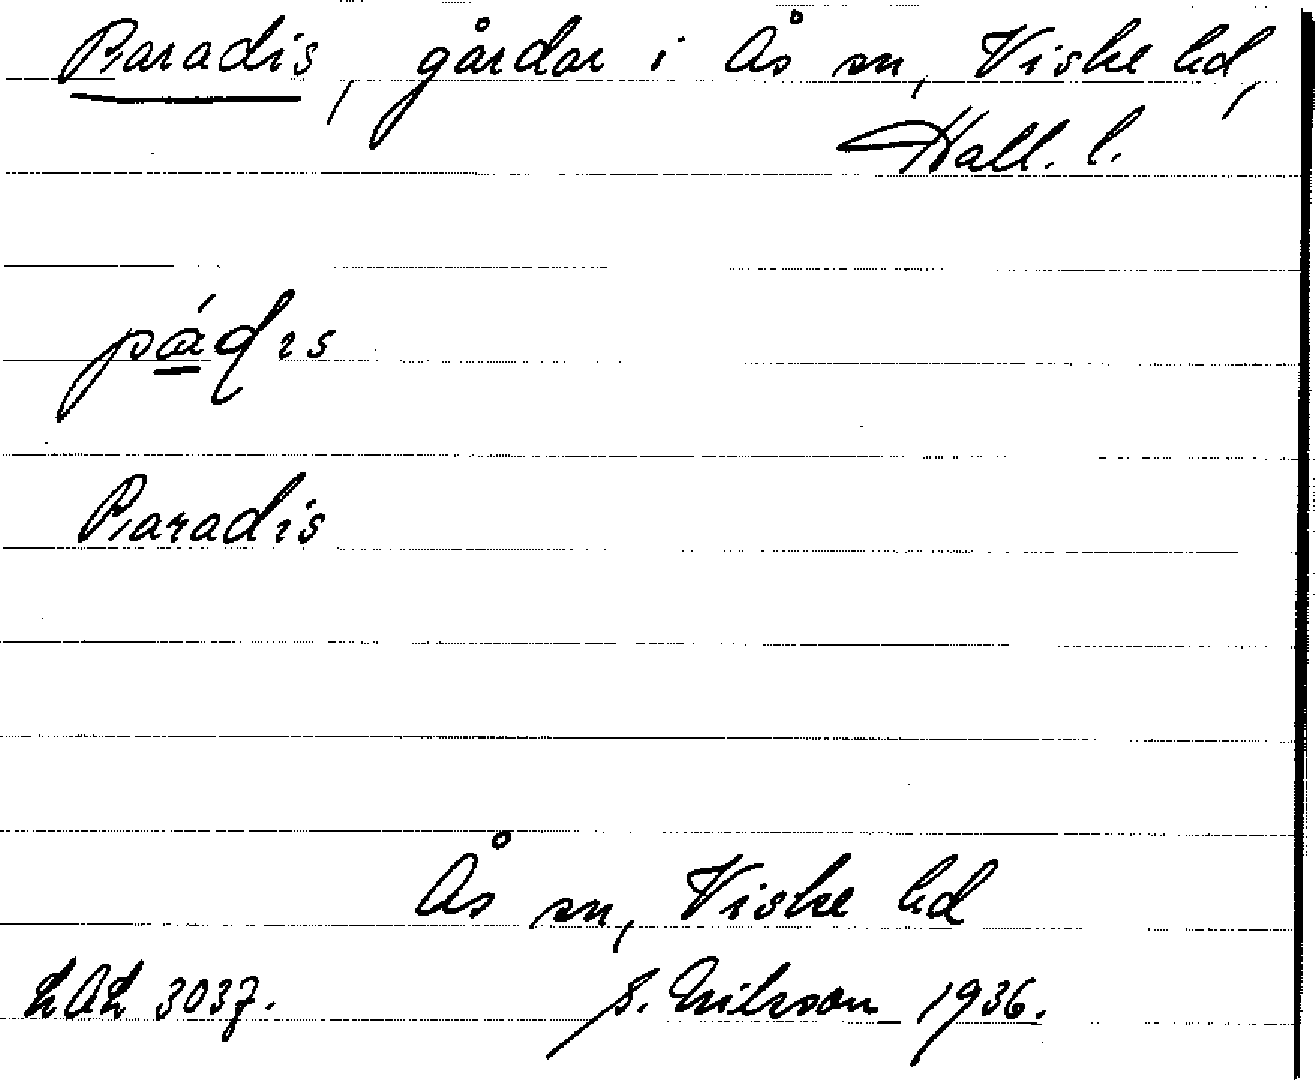 Paradis, gårdar i Ås sn, Viske hd,
Hall. l.
Paradis
Ås sn, Viske hd
LAL 3037. S. Nilsson 1936.